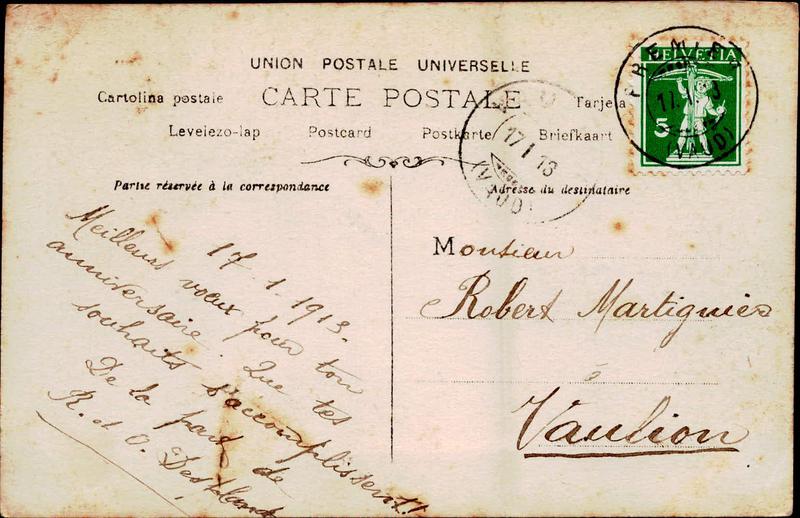 UNION POSTALE UNIVERSELLE
Cartolina postale CARTE POSTALE Tarjeta
Levelezo-lap Postcard Postkarte Briefkaart
Partie réservée à la correspondance
Adresse du destinataire
HELVETIA
5
(VAUD)
17 I 13
(VAUD)
17-1-1913.
Meilleurs vœux pour ton
anniversaire. Que tes
souhaits s'accomplissent!
De la part de
R. et O.
Monsieur
Robert Martignier
à
Vaulion